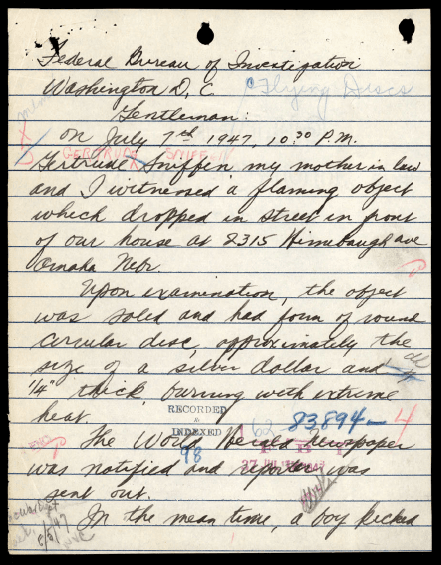 Federal Bureau of Investigation
Washington D, C.
"Flying Discs
Gentleman:
On July 7th 1947, 10:30 P.M.
GERTRUDE SNIFFIN
Gertrude Sniffin, my mother in law
and I witnessed a flaming object
which dropped in street in front
of our house at 2315 Himebaugh ave
Omaha Nebr.
Upon examination, the object
was solid and had form of round
circular disc, approximately the
size of a silver dollar and
1/4" thick, burning with extreme
heat.
RECORDED
&
INDEXED
98
62-83894-4
F B I
The World Herald newspaper
was notified and reporter was
sent out.
In the mean time, a boy kicked